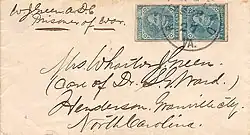 W J Green A.D.C
Prisoner of War.
Mrs Wharton J Green.
(Care of Dr. Ward.)
Henderson. Granville City.
North Carolina.